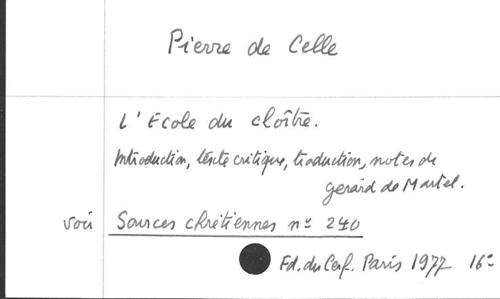 Pierre de Celle
L'Ecole du cloître.
Introduction, texte critique, traduction, notes de
gerard de Martel.
voir Sources chrétiennes n° 240
Ed. du Cerf. Paris 1977 16°